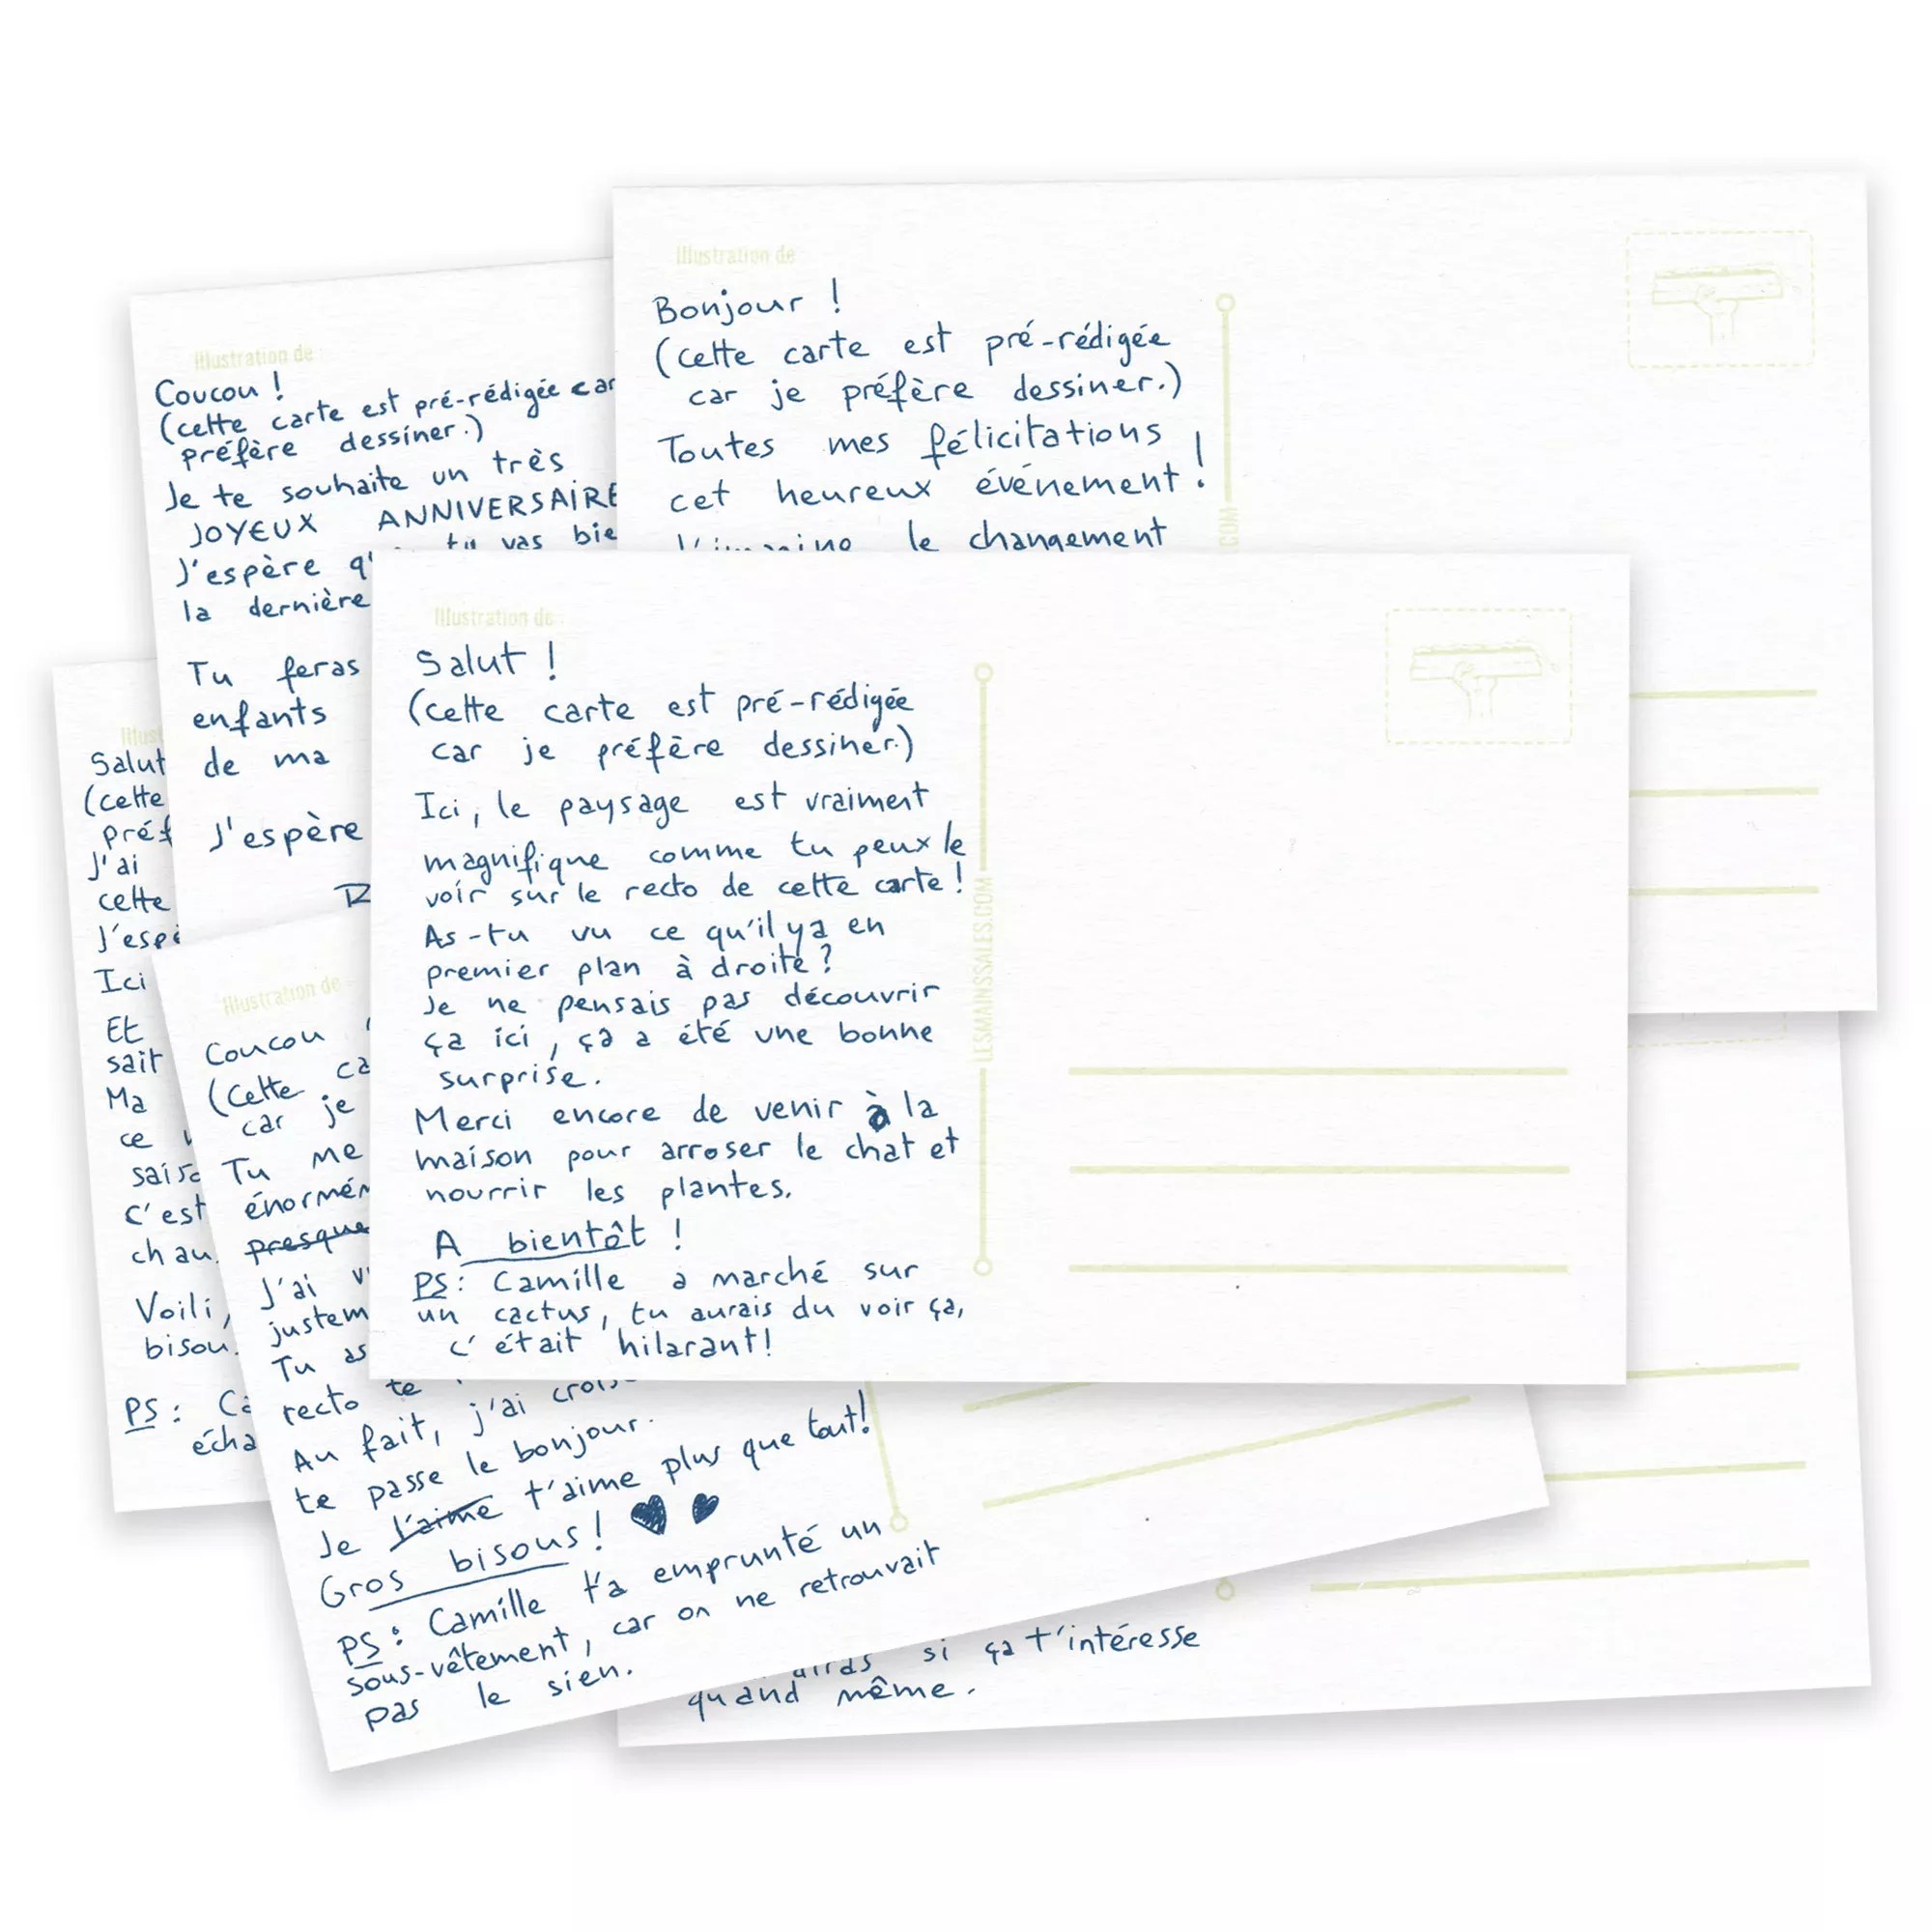 Illustration de
Bonjour !
(cette carte est pré-rédigée
car je préfère dessiner.)
Toutes mes félicitations
cet heureux événement !
le changement
.COM
Illustration de
Coucou !
(cette carte est pré-rédigée car
préfère dessiner.)
Je te souhaite un très
JOYEUX ANNIVERSAIRE
J'espère tu vas bie
la dernière
Tu feras
enfants
de ma
J'espère
Illustration de
Salut !
(cette carte est pré-rédigée
car je préfère dessiner.)
Ici, le paysage est vraiment
magnifique comme tu peux le
voir sur le recto de cette carte !
As-tu vu ce qu'il y a en
premier plan à droite ?
Je ne pensais pas découvrir
ça ici, ça a été une bonne
surprise.
Merci encore de venir à la
maison pour arroser le chat et
nourrir les plantes.
A bientôt !
PS : Camille a marché sur
un cactus, tu aurais du voir ça,
c'était hilarant !
LESMAINSSALES.COM
Illust
Salut
(cette
préf
J'ai
cette
J'espè
Ici
Et
sait
Ma
ce
saiso
c'est
chau
Voili,
bisou
PS : Ca
écha
Illustration de
Coucou
(Cette ca
car je
Tu me
énormém
presque
J'ai v
justem
Tu as
recto te
Au fait, j'ai crois
te passe le bonjour.
Je l'aime t'aime plus que tout!
Gros bisous !
PS : Camille t'a emprunté un
sous-vêtement, car on ne retrouvait
pas le sien.
si ça t'intéresse
quand même.